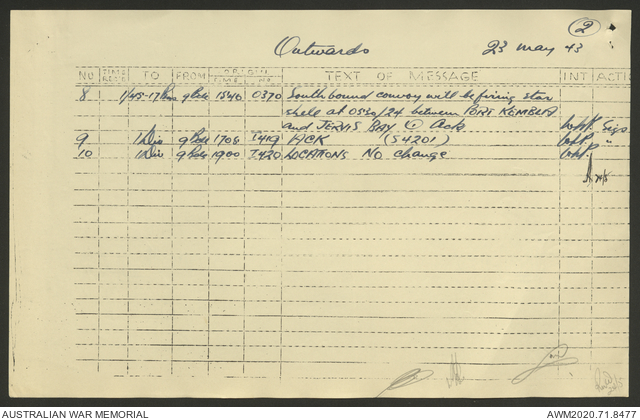 2
Outwards 23 May 43
NO TIME REC'D TO FROM ORIGIN TIME NO TEXT OF MESSAGE INT ACTION
8 1/45-17 Bns 9 Bde 1540 0370 South bound convoy will be firing star
shell at 0530/24 between PORT KEMBLA
and JERVIS BAY @ Ack Sigs
9 1 Div 9 Bde 1705 T419 ACK (S4201) "
10 1 Div 9 Bde 1900 T420 LOCATIONS No change
AUSTRALIAN WAR MEMORIAL AWM2020.71.8477